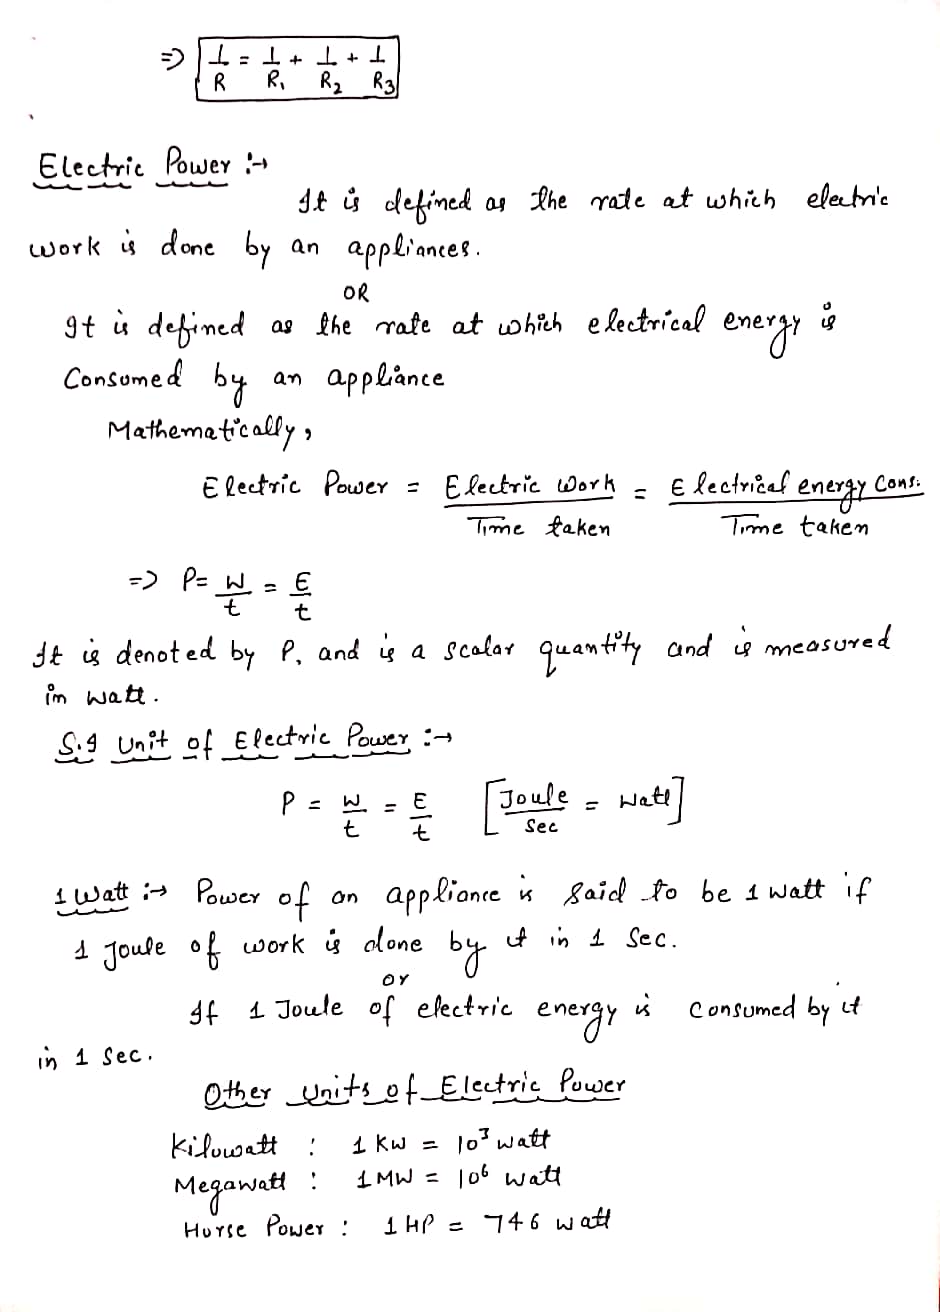 => 1/R = 1/R₁ + 1/R₂ + 1/R₃
Electric Power :→
It is defined as the rate at which electric
work is done by an appliances.
OR
It is defined as the rate at which electrical energy is
Consumed by an appliance
Mathematically,
Electric Power = Electric Work / Time taken = Electrical energy Cons. / Time taken
=> P = W/t = E/t
It is denoted by P, and is a scalar quantity and is measured
in watt.
S.I Unit of Electric Power :→
P = W/t = E/t [Joule/Sec = Watt]
1 Watt :→ Power of an appliance is said to be 1 watt if
1 Joule of work is done by it in 1 Sec.
or
If 1 Joule of electric energy is consumed by it
in 1 Sec.
Other Units of Electric Power
Kilowatt : 1 KW = 10³ watt
Megawatt : 1 MW = 10⁶ watt
Horse Power : 1 HP = 746 watt